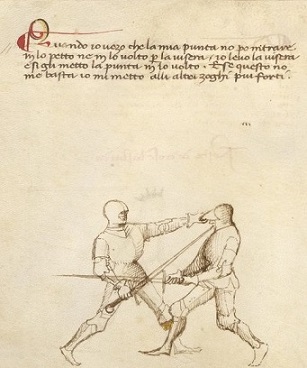 Quando io vezo che la mia punta no po intrare
in lo petto ne in lo volto p la visera / io levo la visera
e si gli metto la punta in lo volto . E se questo no
me basta io mi metto alli altri zoghi piu forti .